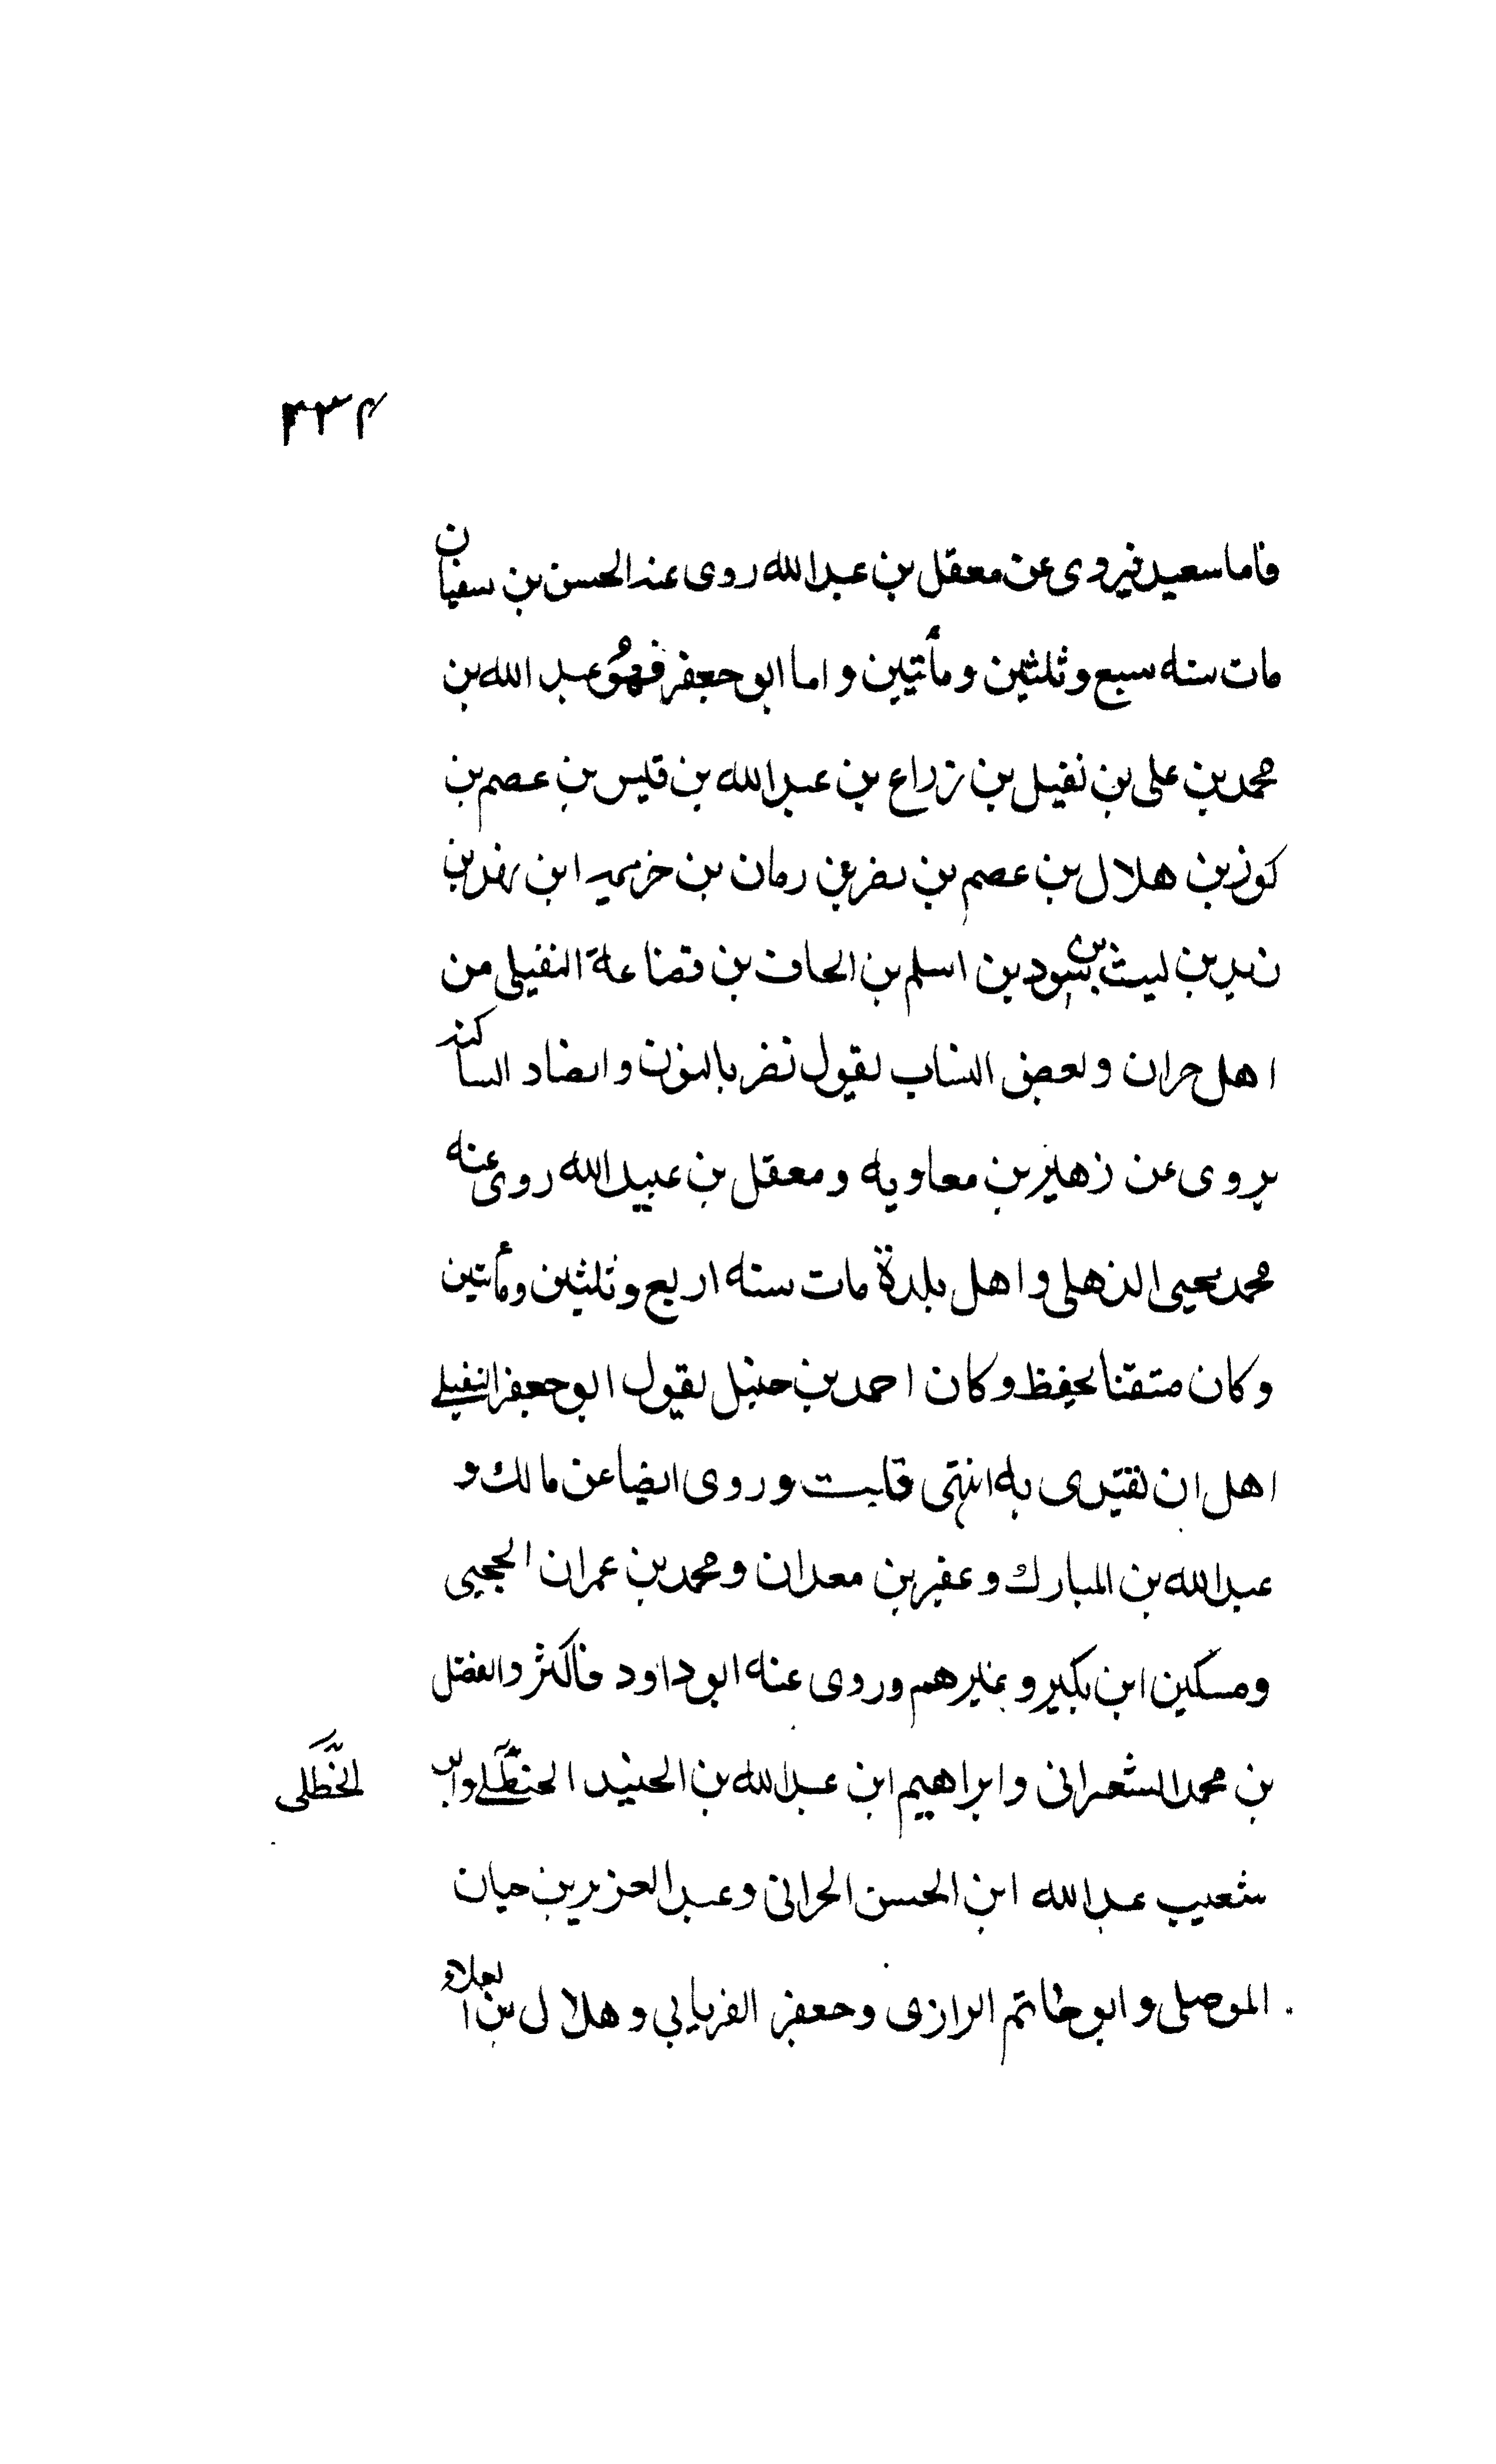 ٢٣٤
فاما سعيد فيروى عن معقل بن عبدالله روى عنه الحسن بن سفيان
مات سنه سبع وثلثين ومأتيين واما ابو جعفر فهو عبد الله بن
محمد بن على بن نفيل بن زراع بن عبدالله بن قيس بن عصم بن
كوز بن هلال بن عصم بن نفر بن رمان بن خزيمه ابن نهد بن
زيد بن ليث بن سود بن اسلم بن الحاف بن قضاعة النفيلى من
اهل حران وبعض النساب يقول نضر بالنون والضاد الساكنه
يروى عن زهير بن معاويه ومعقل بن عبيدالله روى عنه
محمد يحيى الذهلى واهل بلدة مات سنه اربع وثلثين ومأتين
وكان متقنا يحفظ وكان احمد بن حنبل يقول ابو جعفر النفيلے
اهل ان يقتدى به انتهى قلت وروى ايضا عن مالك و
عبدالله بن المبارك وعفير بن معدان ومحمد بن عمران الحجبى
ومسكين ابن بكير وغيرهم وروى عنه ابو داود فاكثر والفضل
بن محمد الشعرانى وابراهيم ابن عبدالله بن الجنيد الحنظلے وابو
الختلى
شعيب عبدالله ابن الحسن الحرانى وعبد العزيز بن حيان
الموصلى وابو حاتم الرازى وجعفر الفريابي وهلال بن العلاء